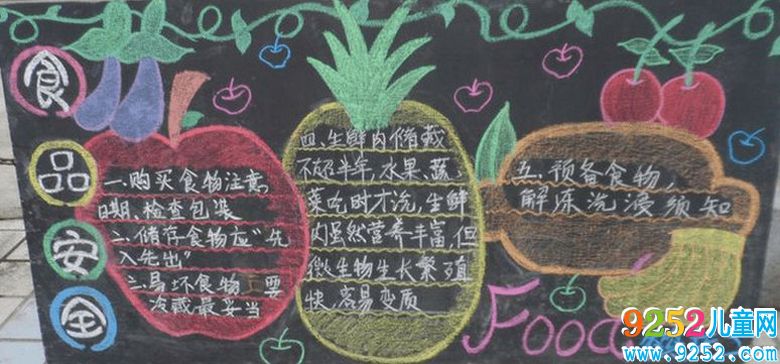 食
品
安
全
一.购买食物注意,
日期、检查包装
二.储存食物应“先
入先出”
三.易坏食物.要
冷藏最妥当
四.生鲜肉储藏
不超半年,水果、蔬
菜吃时才洗,生鲜
肉虽然营养丰富,但
微生物生长繁殖
快,容易变质
五.预备食物,
解冻洗浸须知
Food
9252儿童网
www.9252.com